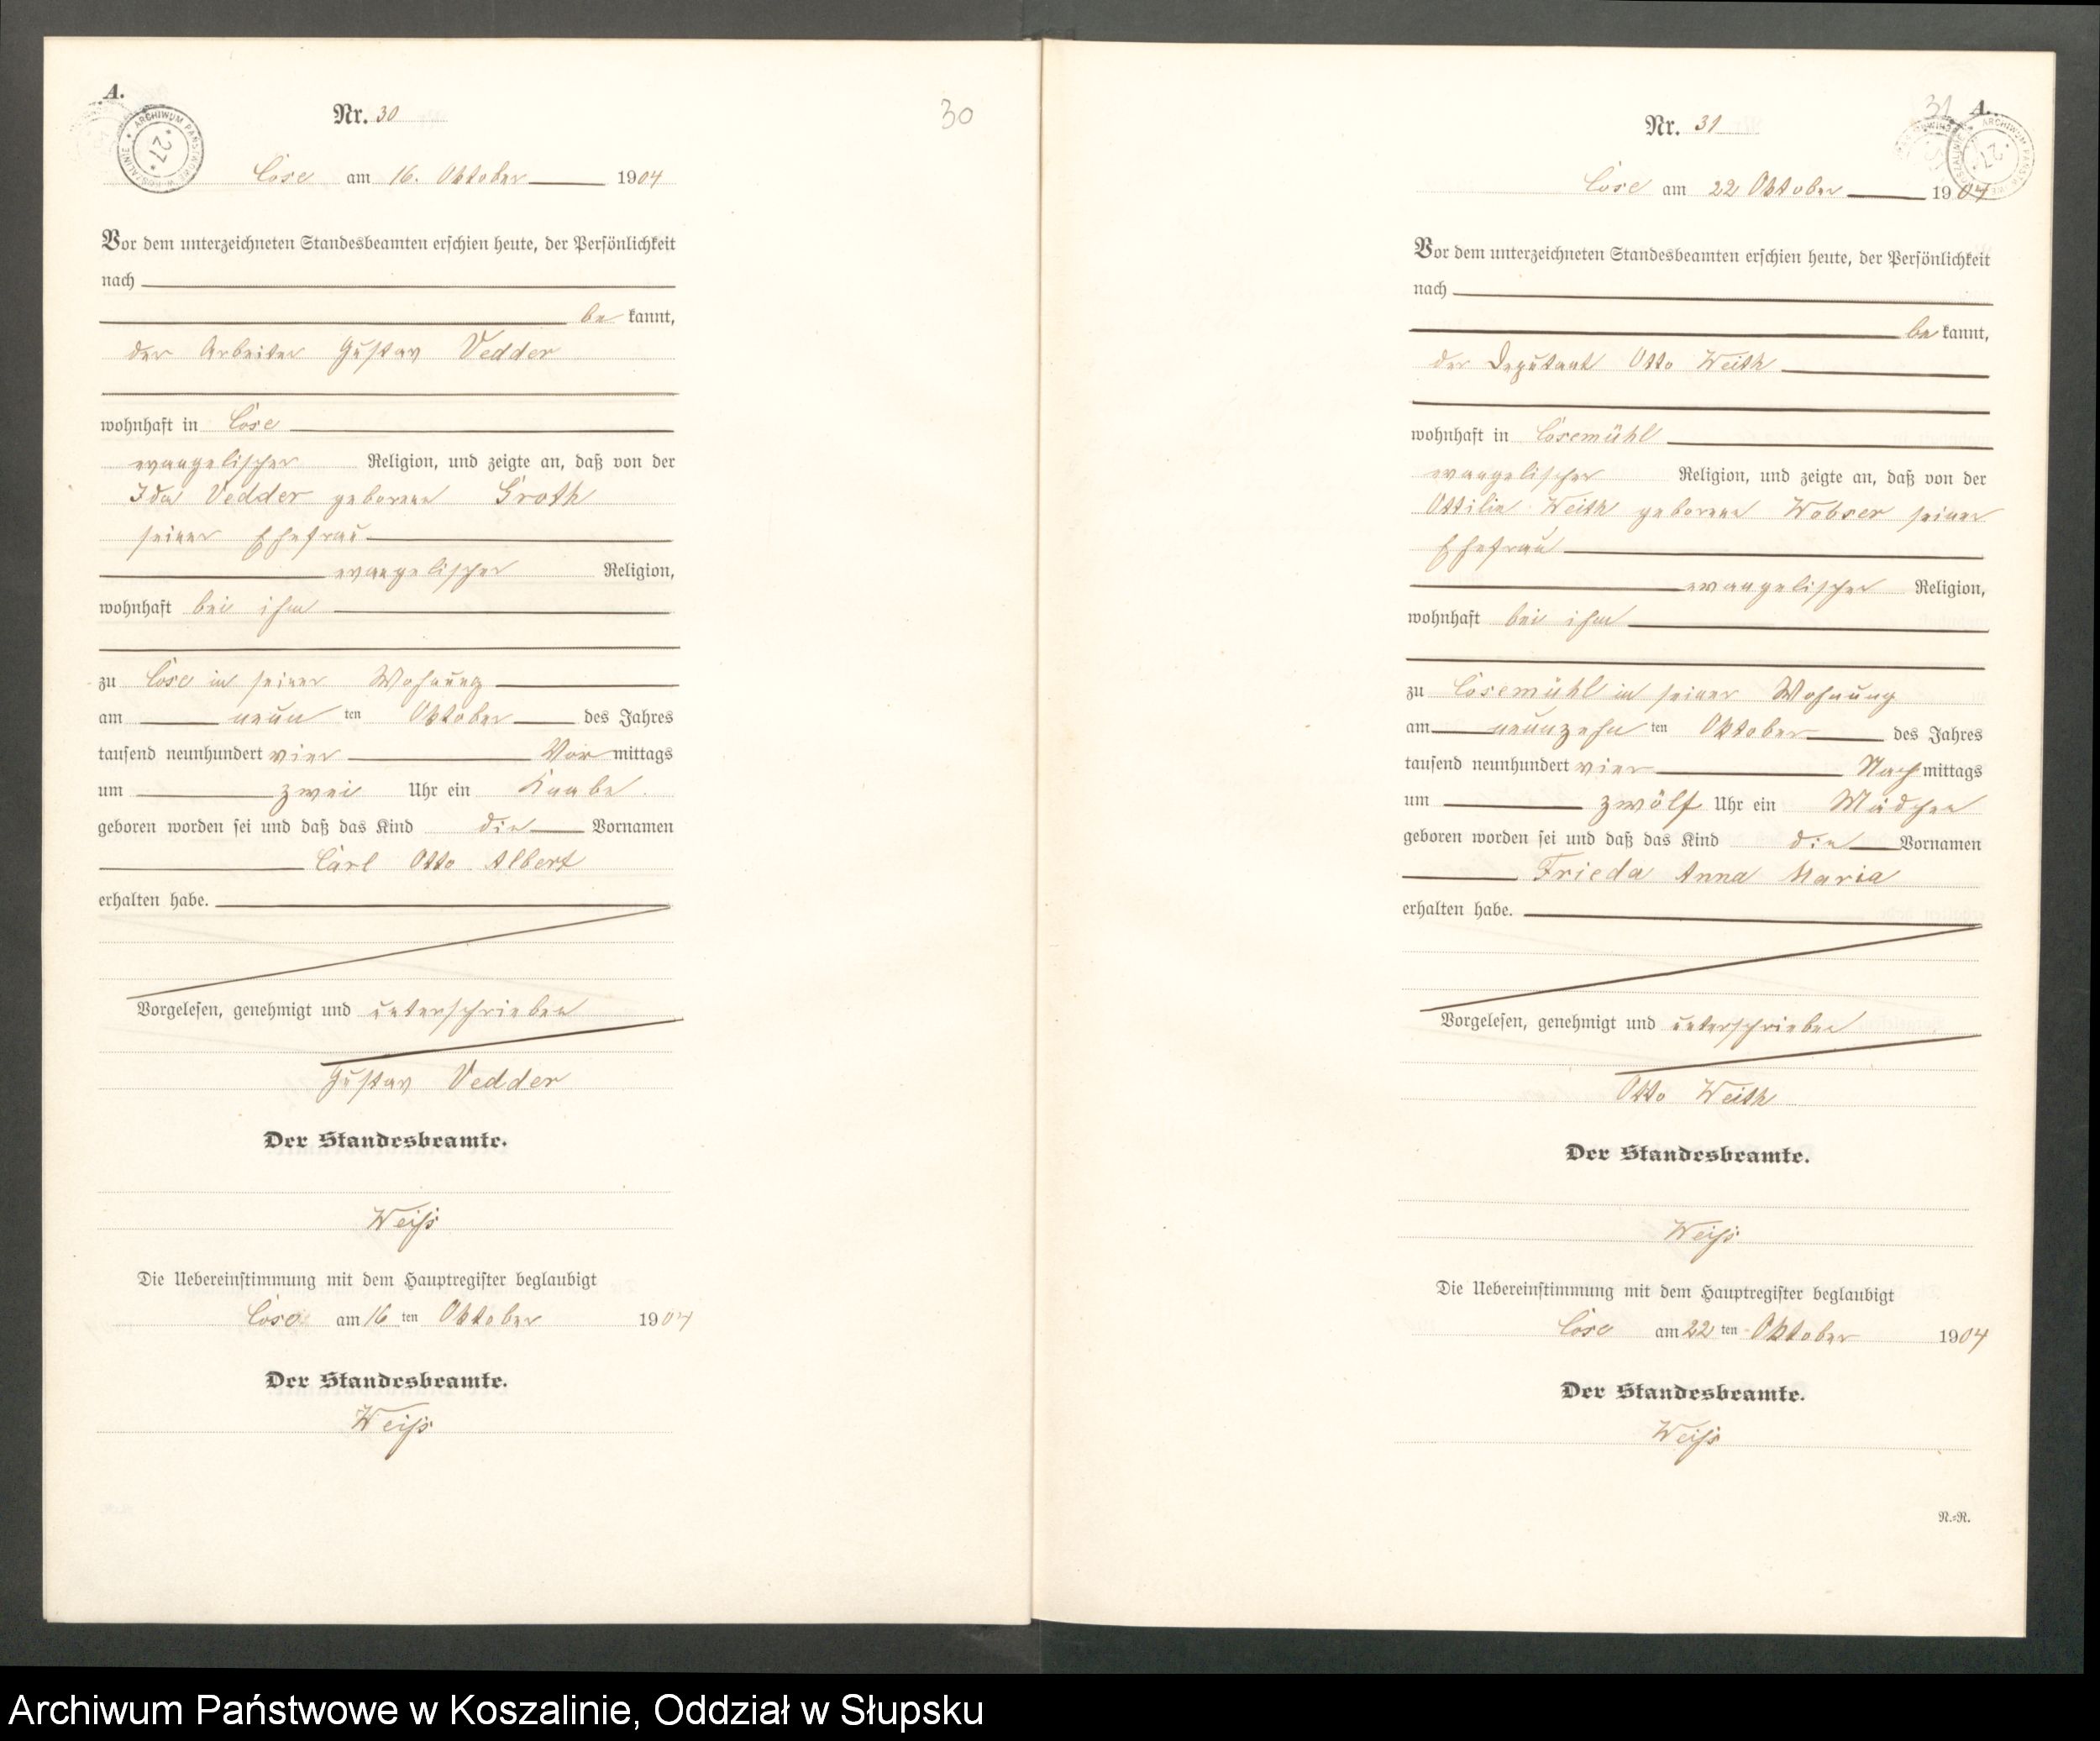 A.
Nr. 30
30
ARCHIWUM PAŃSTWOWE W KOSZALINIE
27
Cose am 16. Oktober 1904
Vor dem unterzeichneten Standesbeamten erschien heute, der Persönlichkeit
nach
be kannt,
der Arbeiter Gustav Vedder
wohnhaft in Cose
evangelischer Religion, und zeigte an, daß von der
Ida Vedder geborene Groth
seiner Ehefrau
evangelischer Religion,
wohnhaft bei ihm
zu Cose in seiner Wohnung
am neun ten Oktober des Jahres
tausend neunhundert vier Vor mittags
um zwei Uhr ein Knabe
geboren worden sei und daß das Kind die Vornamen
Carl Otto Albert
erhalten habe.
Vorgelesen, genehmigt und unterschrieben
Gustav Vedder
Der Standesbeamte.
Weiß
Die Uebereinstimmung mit dem Hauptregister beglaubigt
Cose am 16 ten Oktober 1904
Der Standesbeamte.
Weiß
31 A.
Nr. 31
ARCHIWUM PAŃSTWOWE W KOSZALINIE
27
Cose am 22 Oktober 1904
Vor dem unterzeichneten Standesbeamten erschien heute, der Persönlichkeit
nach
be kannt,
der Deputant Otto Weith
wohnhaft in Cosemühl
evangelischer Religion, und zeigte an, daß von der
Ottilie Weith geborene Wobser seiner
Ehefrau
evangelischer Religion,
wohnhaft bei ihm
zu Cosemühl in seiner Wohnung
am neunzehn ten Oktober des Jahres
tausend neunhundert vier Nach mittags
um zwölf Uhr ein Mädchen
geboren worden sei und daß das Kind die Vornamen
Frieda Anna Maria
erhalten habe.
Vorgelesen, genehmigt und unterschrieben
Otto Weith
Der Standesbeamte.
Weiß
Die Uebereinstimmung mit dem Hauptregister beglaubigt
Cose am 22 ten Oktober 1904
Der Standesbeamte.
Weiß
R.=R.
Archiwum Państwowe w Koszalinie, Oddział w Słupsku